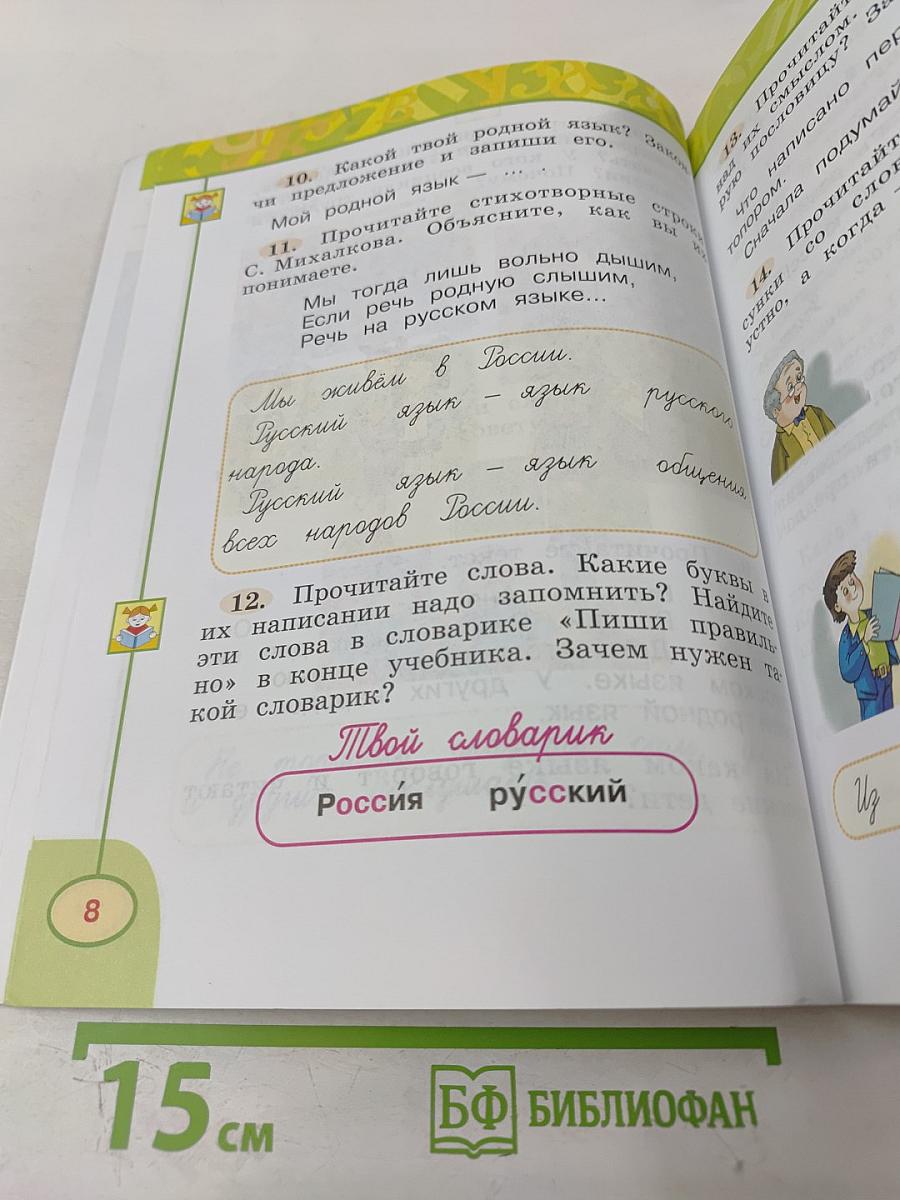 10. Какой твой родной язык? Закон
чи предложение и запиши его.
Мой родной язык — ... .
11. Прочитайте стихотворные строки
С. Михалкова. Объясните, как вы их
понимаете.
Мы тогда лишь вольно дышим,
Если речь родную слышим,
Речь на русском языке...
Мы живём в России.
Русский язык — язык русского
народа.
Русский язык — язык общения
всех народов России.
12. Прочитайте слова. Какие буквы в
их написании надо запомнить? Найдите
эти слова в словарике «Пиши правиль-
но» в конце учебника. Зачем нужен та-
кой словарик?
Твой словарик
Росси́я ру́сский
8
13. Прочитайт
над их смыслом.
рую пословицу? За
что написано пер
топором.
Сначала подумай
14. Прочитайт
сунки со слов
устно, а когда —
Из
15 см
БФ БИБЛИОФАН